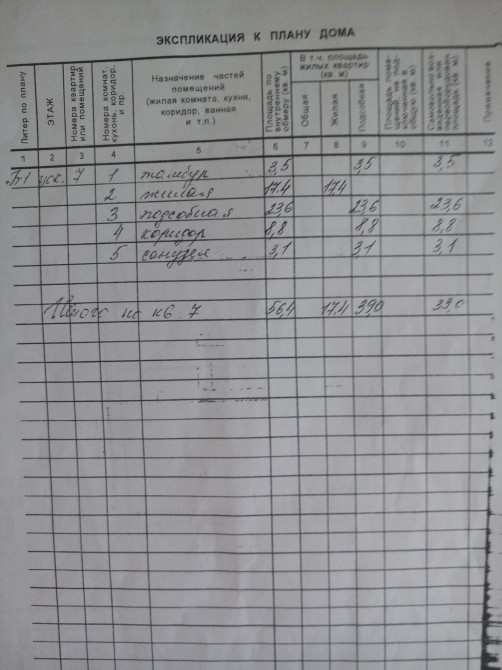 ЭКСПЛИКАЦИЯ К ПЛАНУ ДОМА
Литер по плану
ЭТАЖ
Номера квартир или помещений
Номера комнат, кухонь, коридор. и пр.
Назначение частей помещений (жилая комната, кухня, коридор, ванная и т.п.)
Площадь по внутреннему обмеру (кв. м)
В т.ч. площадь жилых квартир (кв. м)
Общая
Жилая
Подсобная
Примечание
1 2 3 4 5 6 7 8 9 10 11 12
Б1 7 1 тамбур 3,5 3,5 3,5
2 жилая 17.4 17.4
3 подсобная 23,6 23,6 23,6
4 коридор 8,8 8,8 8,8
5 санузел 3,1 3,1 3,1
Итого по кв. 7 56,4 17.4 39,0 39,0